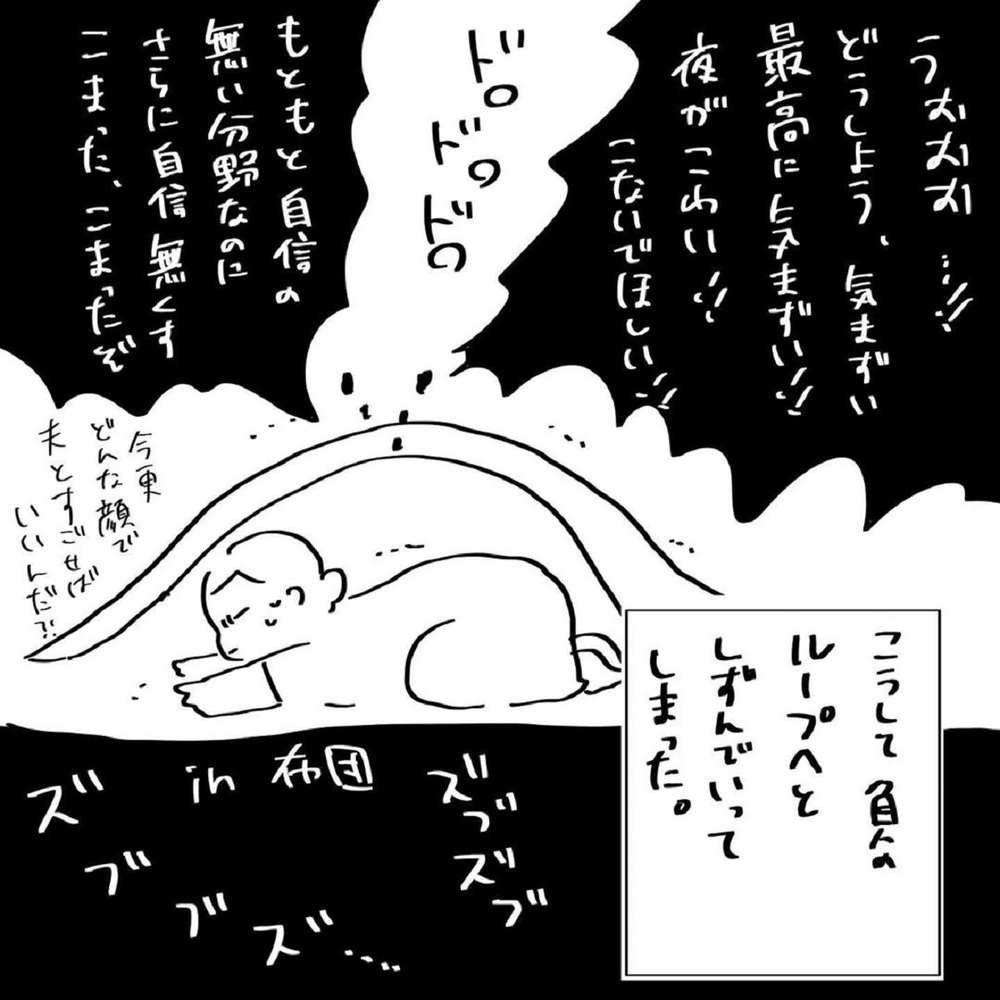 うおおお…!!
どうしよう、気まずい
最高に気まずい!!
夜がこわい!!
こないでほしい!!
ドロ
ドロ
ドロ
もともと自信の
無い分野なのに
さらに自信無くす
こまった、こまったぞ
今更
どんな顔で
夫とすごせば
いいんだ?!
こうして負の
ループへと
しずんでいって
しまった。
in 布団
ズブ
ズブ
ズ
ブ
ブ
ズ…